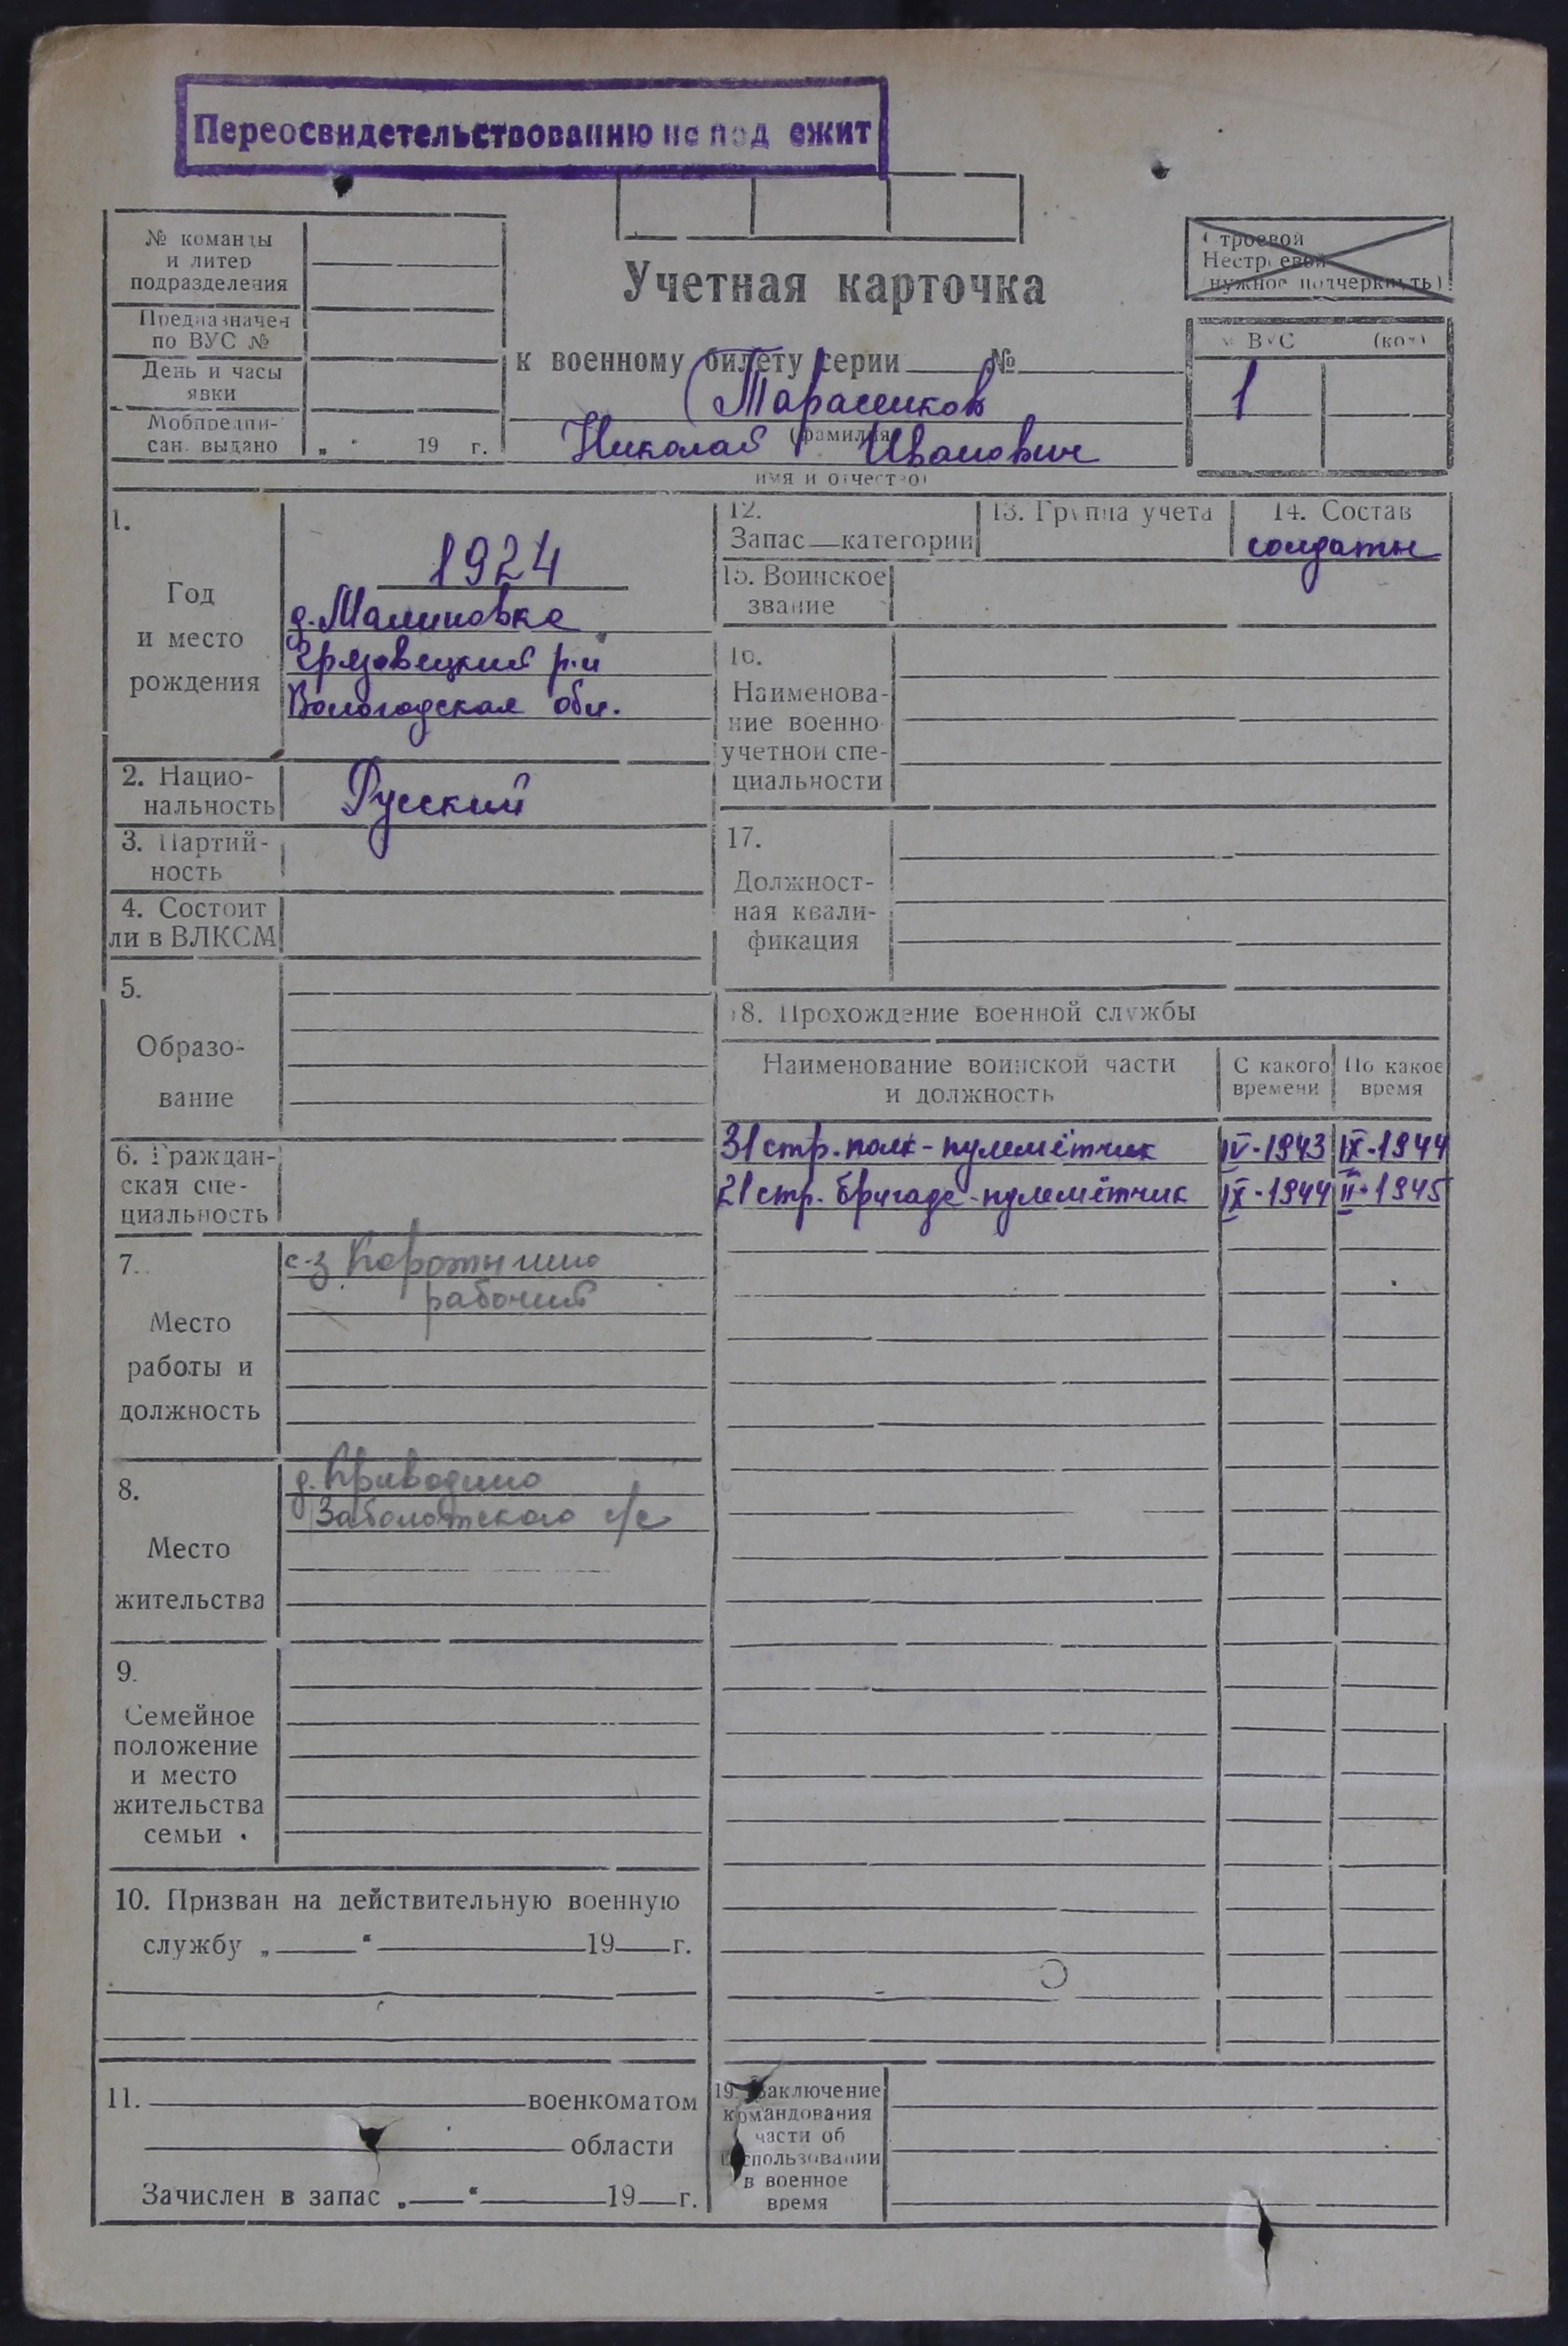 Переосвидетельствованию не под ежит
№ команды
и литер
подразделения
Предназначен
по ВУС №
День и часы
явки
Мобпредпи-
сан. выдано
„ “ 19 г.
Учетная карточка
к военному билету серии №
Тарасенков
(фамилия)
Николай Иванович
имя и отчество)
Строевой
Нестроевой
нужное подчеркнуть)
№ ВУС (код)
1
1.
Год
и место
рождения
1924
д. Малиновка
Грязовецкий р-н
Вологодская обл.
2. Нацио-
нальность
Русский
3. Партий-
ность
4. Состоит
ли в ВЛКСМ
5.
Образо-
вание
6. Граждан-
ская спе-
циальность
7.
Место
работы и
должность
с-з Коротыгино
рабочий
8.
Место
жительства
д. Приводино
Заболотского с/с
9.
Семейное
положение
и место
жительства
семьи
10. Призван на действительную военную
службу „ “ 19 г.
11. военкоматом
области
Зачислен в запас „ “ 19 г.
12.
Запас категории
13. Группа учета
14. Состав
солдаты
15. Воинское
звание
16.
Наименова-
ние военно
учетной спе-
циальности
17.
Должност-
ная квали-
фикация
18. Прохождение военной службы
Наименование воинской части
и должность
С какого
времени
По какое
время
31 стр. полк - пулемётчик IV-1943 IX-1944
21 стр. бригада - пулемётчик IX-1944 II-1945
19. Заключение
командования
части об
использовании
в военное
время